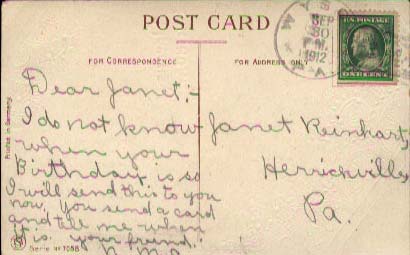 POST CARD
SEP
30
P.M.
1912
U.S. POSTAGE
ONE CENT
FOR CORRESPONDENCE
FOR ADDRESS ONLY
Dear Janet:-
I do not know
when your
Birthday is so
I will send this to you
now, you send a card
and tell me when
it is. your friend.
Janet Reinhart,
Herrickville,
Pa.
Printed in Germany
Serie № 1058